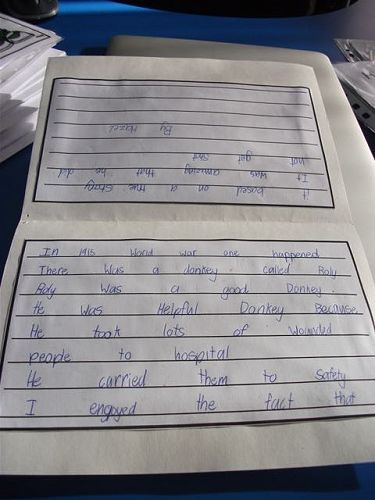 In 1915 World war one happened
There Was a donkey called Roly
Roly Was a good Donkey.
He was Helpful Donkey Because
He took lots of Wounded
people to hospital
He carried them to Safety
I engoyed the fact that
it based on a true story
It was amazing that he did
not get shot
By Hazel